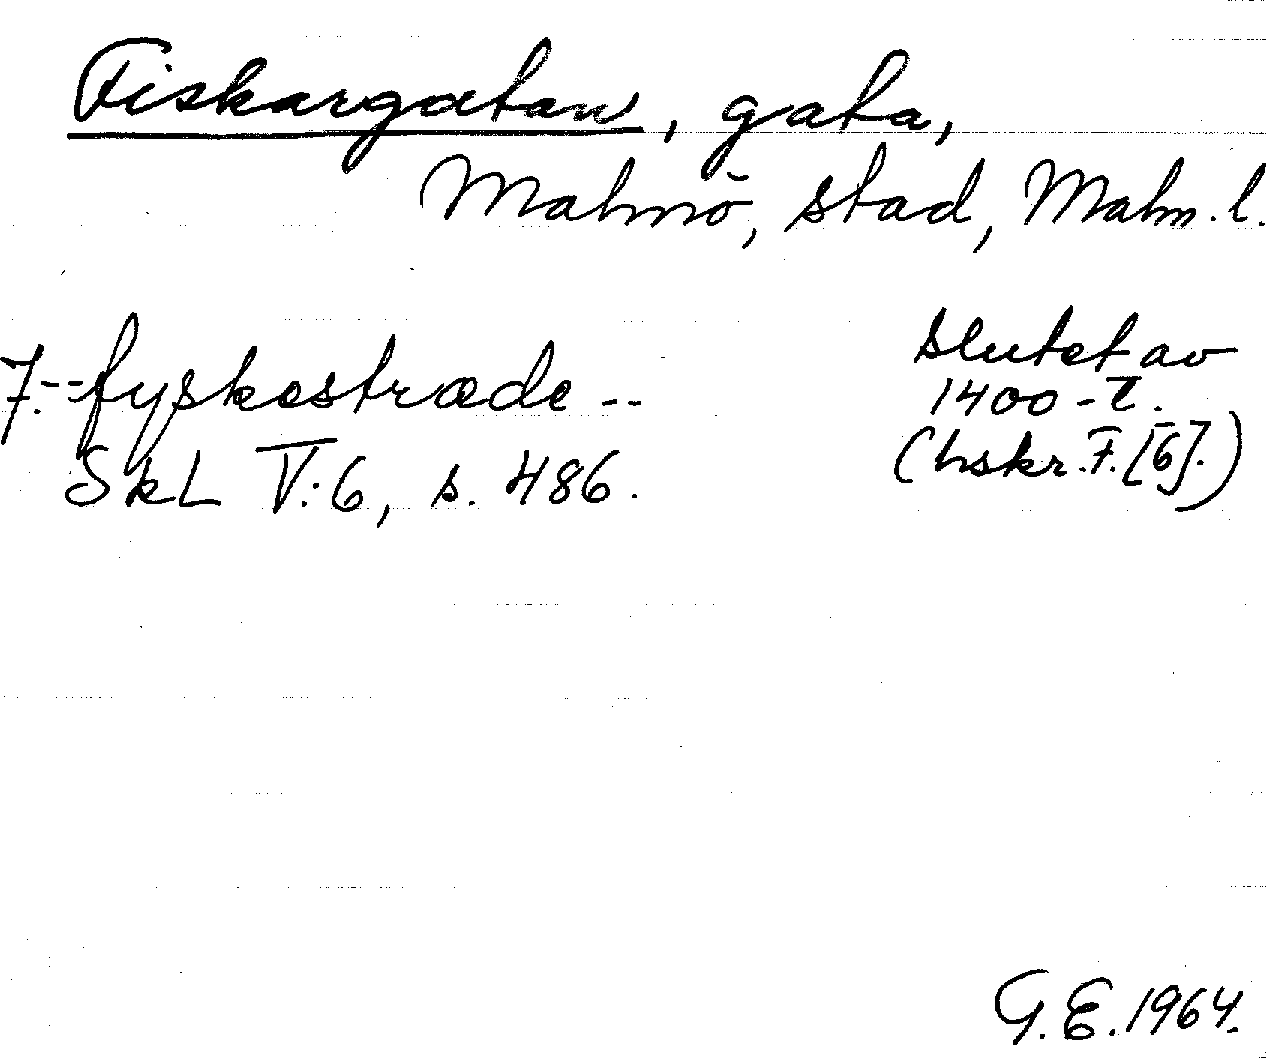 Fiskargatan, gata,
Malmö, stad, Malm. l.
7. -- fyskestræde -- slutet av
1400-t.
SkL V:6, s. 486. (hskr. F. [6].)
G.E. 1964.